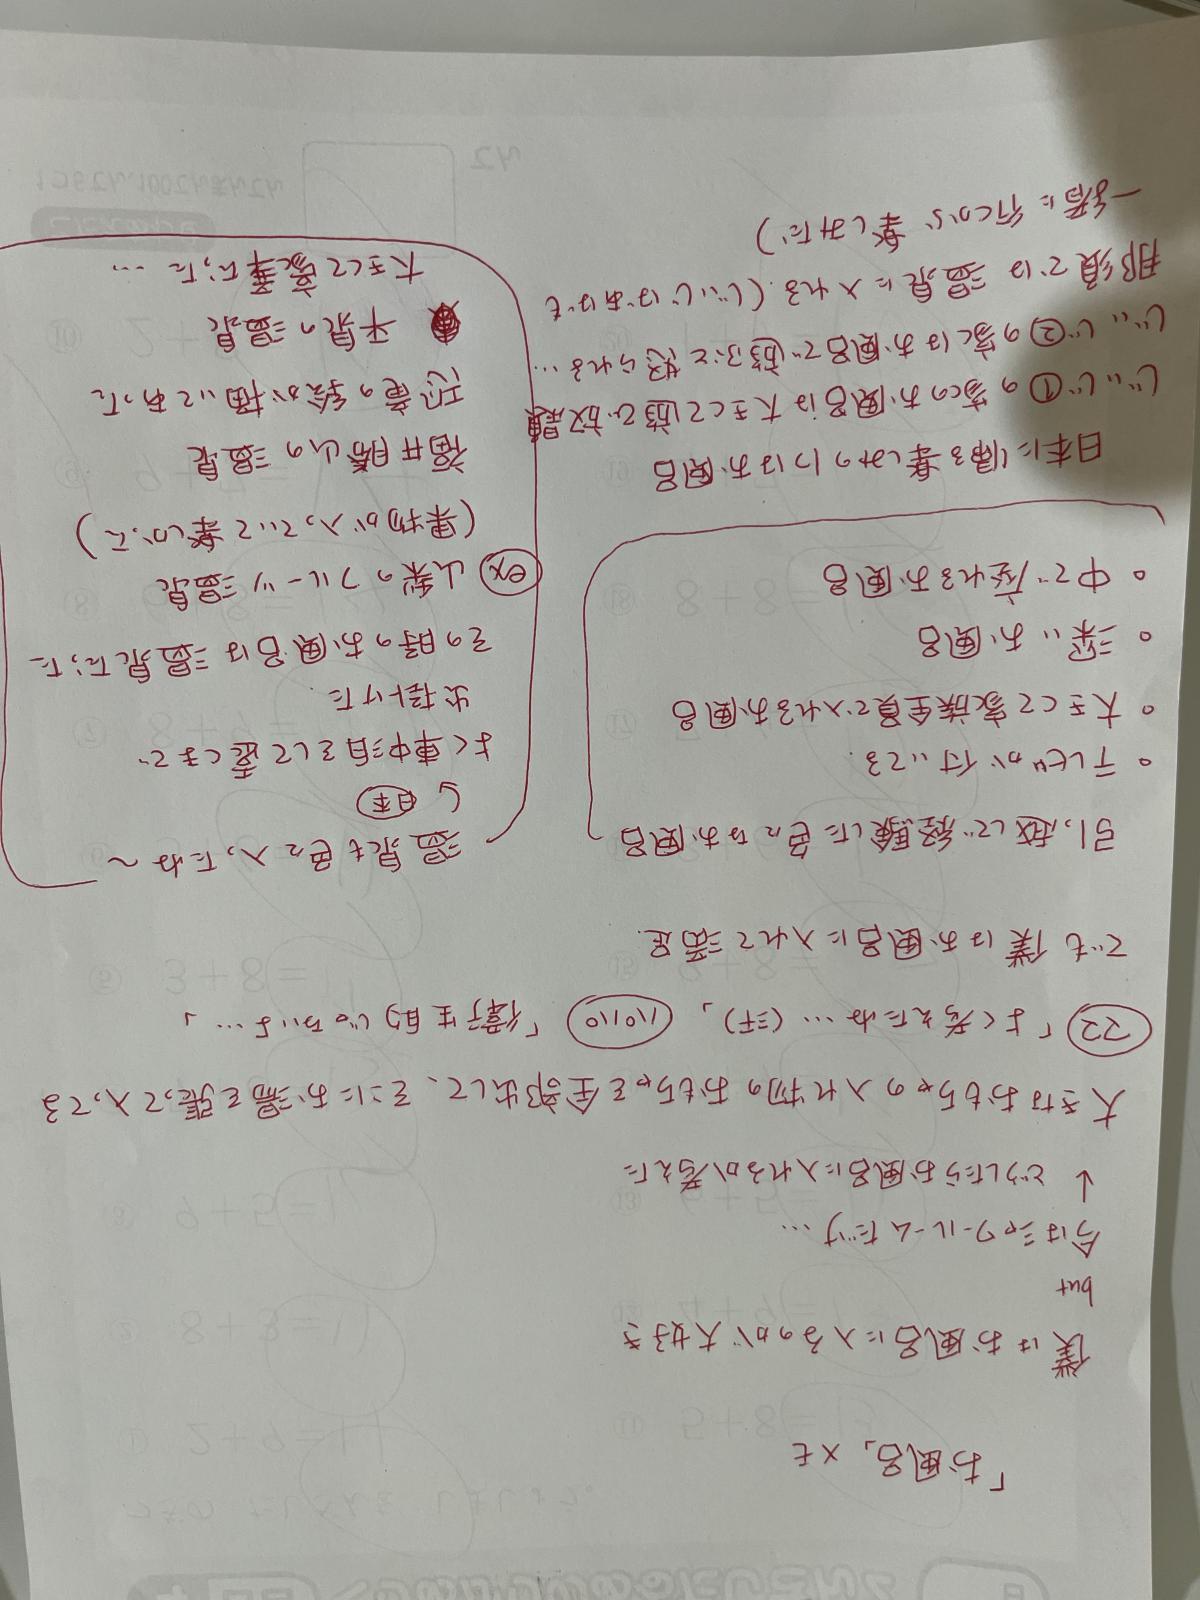 「お風呂」メモ
僕はお風呂に入るのが大好き
but
今はシャワールームだけ…
↓ どうしたらお風呂に入れるか考えた
大きなおもちゃの入れ物のおもちゃを全部出して、そこにお湯を張って入ってる
ママ「よく考えたね…(汗)」 パパ「衛生的じゃないよ…」
でも僕はお風呂に入れて満足.
引っ越しで経験した色々なお風呂
○ テレビが付いてる.
○ 大きくて家族全員で入れるお風呂
○ 深いお風呂
○ 中で座れるお風呂
日本に帰る楽しみの1つはお風呂
じいじ①の家のお風呂は大きくて遊び放題
じいじ②の家はお風呂で遊ぶと怒られる…
那須では温泉に入れる.(じいじばあばも
一緒に行くから楽しみだ)
温泉も色々入ったね〜
↳ 日本
よく車中泊をして遠くまで
出掛けた.
その時のお風呂は温泉だった
ex 山梨のフルーツ温泉
(果物が入っていて楽しかった)
福井勝山の温泉
恐竜の絵が描いてあった
平泉の温泉
大きくて豪華だった…